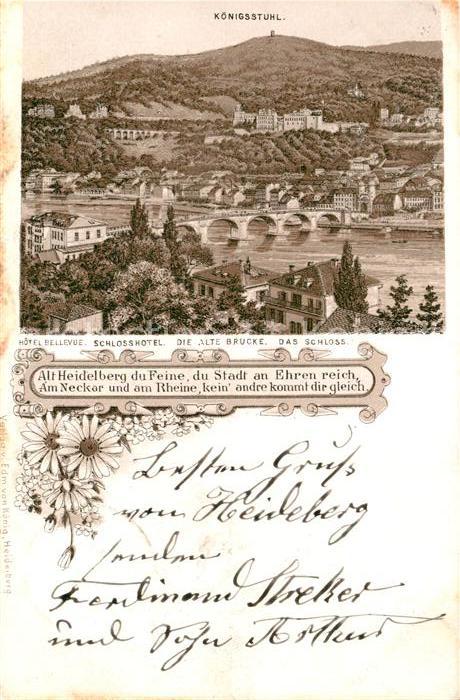 KÖNIGSSTUHL.
HÔTEL BELLEVUE. SCHLOSSHOTEL. DIE ALTE BRÜCKE. DAS SCHLOSS.
Alt Heidelberg du Feine, du Stadt an Ehren reich,
Am Neckar und am Rheine, kein' andre kommt dir gleich.
Besten Gruß
von Heideberg
senden
Ferdinand Streker
und Sohn Arthur
Verlag v. Edm. von König, Heidelberg